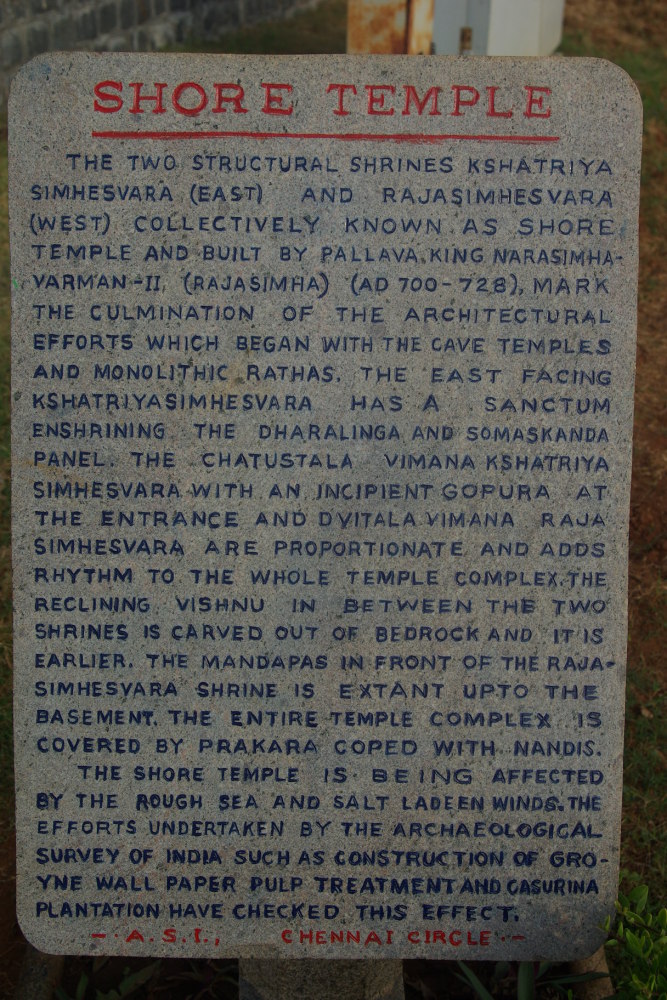 SHORE TEMPLE
THE TWO STRUCTURAL SHRINES KSHATRIYA
SIMHESVARA (EAST) AND RAJASIMHESVARA
(WEST) COLLECTIVELY KNOWN AS SHORE
TEMPLE AND BUILT BY PALLAVA KING NARASIMHA-
VARMAN-II, (RAJASIMHA) (AD 700-728), MARK
THE CULMINATION OF THE ARCHITECTURAL
EFFORTS WHICH BEGAN WITH THE CAVE TEMPLES
AND MONOLITHIC RATHAS. THE EAST FACING
KSHATRIYASIMHESVARA HAS A SANCTUM
ENSHRINING THE DHARALINGA AND SOMASKANDA
PANEL. THE CHATUSTALA VIMANA KSHATRIYA
SIMHESVARA WITH AN INCIPIENT GOPURA AT
THE ENTRANCE AND DVITALA VIMANA RAJA
SIMHESVARA ARE PROPORTIONATE AND ADDS
RHYTHM TO THE WHOLE TEMPLE COMPLEX. THE
RECLINING VISHNU IN BETWEEN THE TWO
SHRINES IS CARVED OUT OF BEDROCK AND IT IS
EARLIER. THE MANDAPAS IN FRONT OF THE RAJA-
SIMHESVARA SHRINE IS EXTANT UPTO THE
BASEMENT. THE ENTIRE TEMPLE COMPLEX IS
COVERED BY PRAKARA COPED WITH NANDIS.
THE SHORE TEMPLE IS BEING AFFECTED
BY THE ROUGH SEA AND SALT LADEEN WINDS. THE
EFFORTS UNDERTAKEN BY THE ARCHAEOLOGICAL
SURVEY OF INDIA SUCH AS CONSTRUCTION OF GRO-
YNE WALL PAPER PULP TREATMENT AND CASURINA
PLANTATION HAVE CHECKED THIS EFFECT.
- A.S.I., CHENNAI CIRCLE -